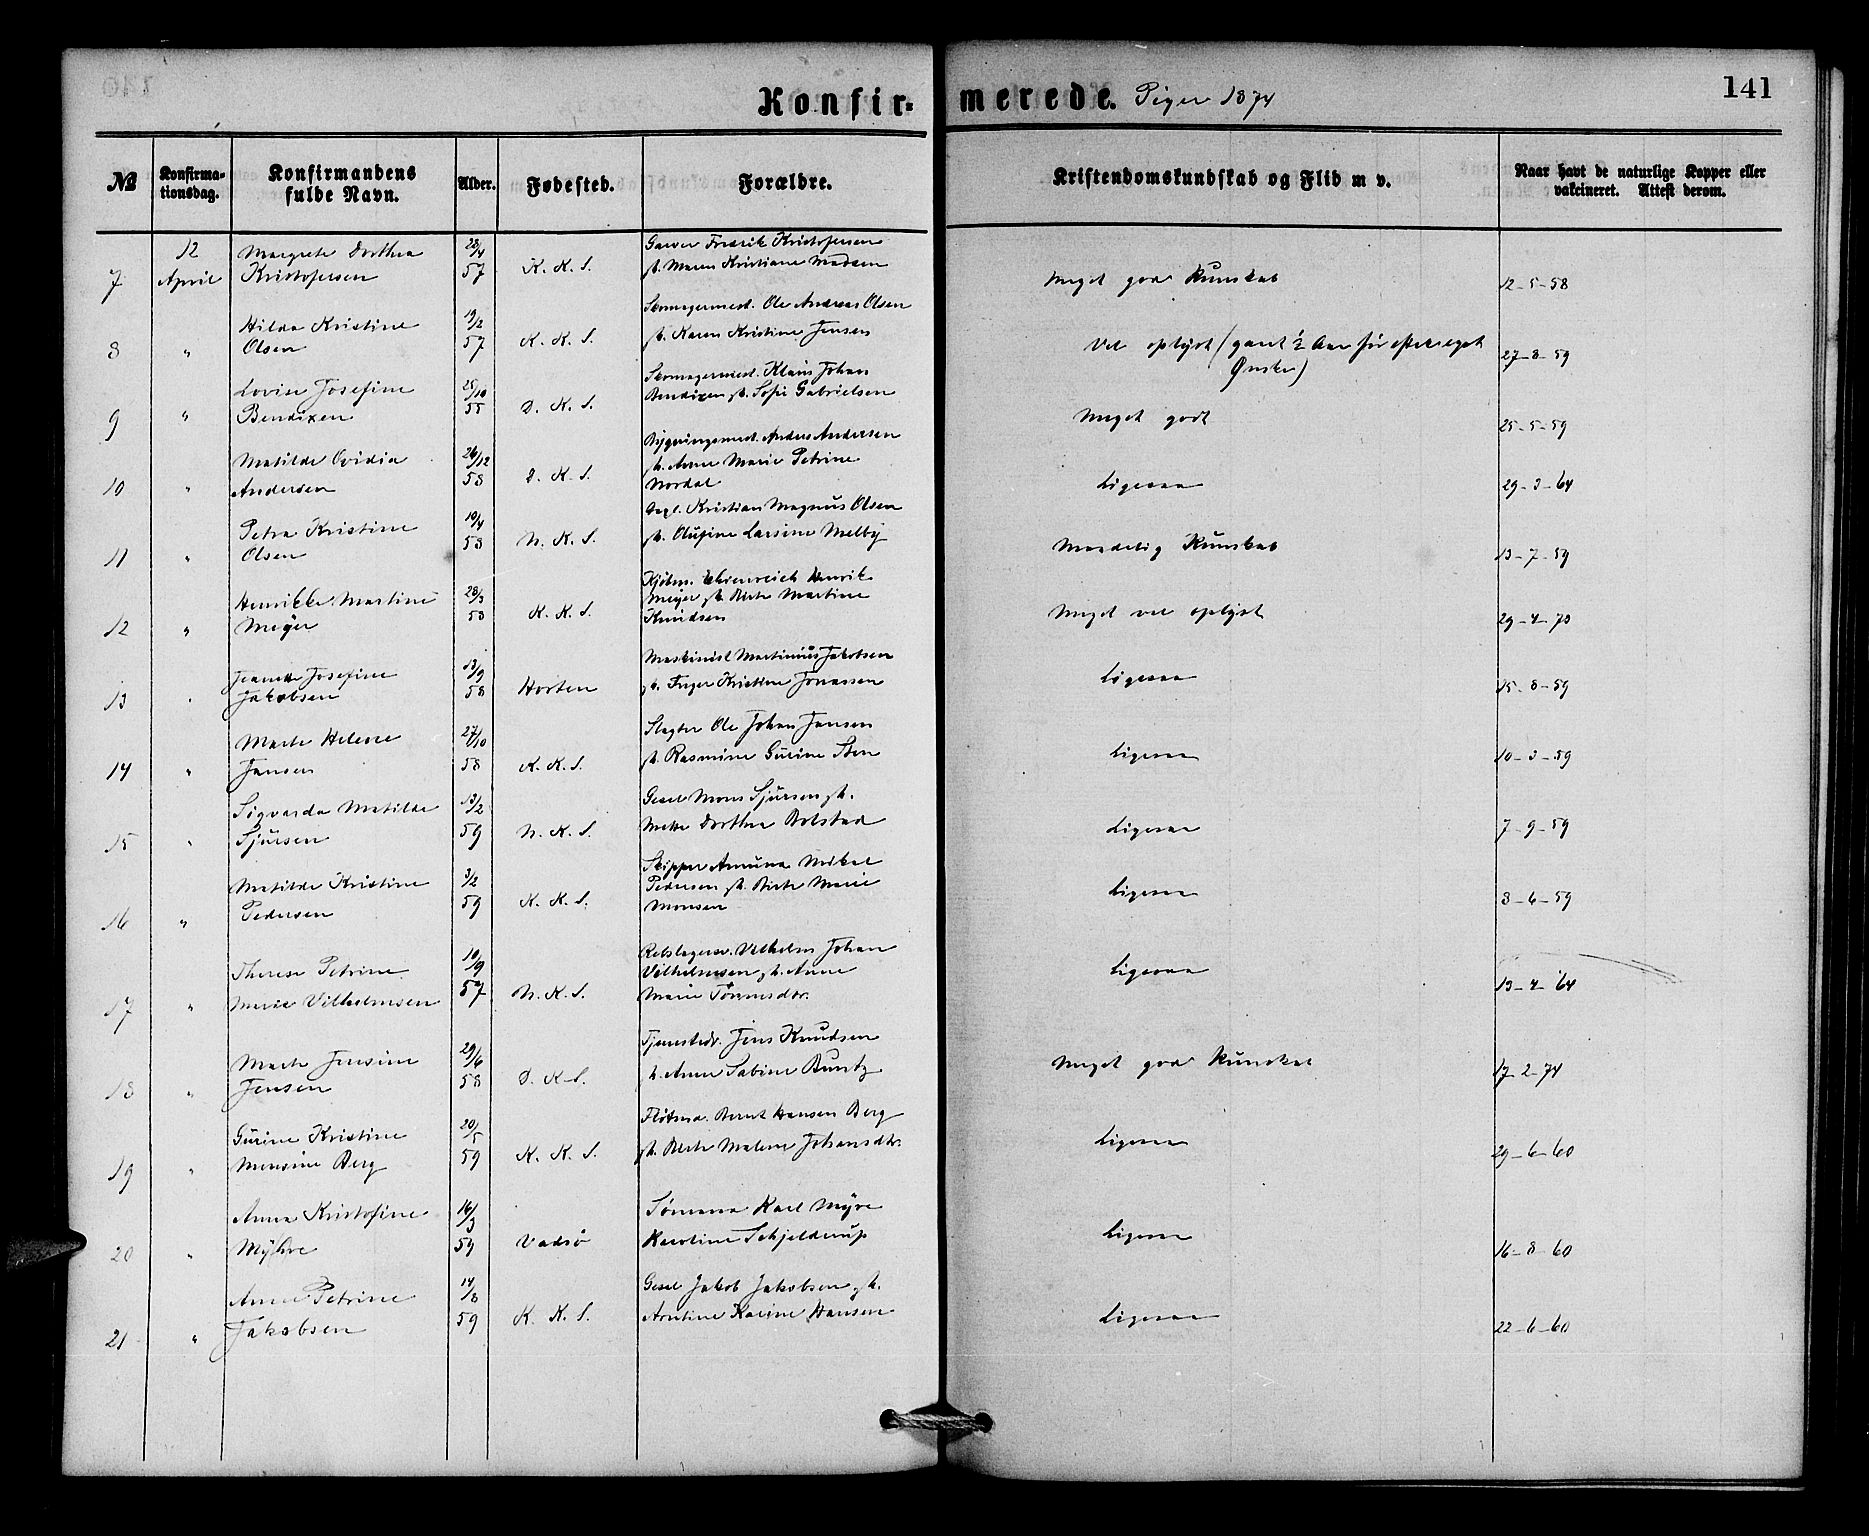 141
Konfirmerede. Piger 1874
№
Konfirmationsdag.
Konfirmandens fulde Navn.
Alder.
Fødested.
Forældre.
Kristendomskundskab og Flid m v.
Naar havt de naturlige Kopper eller vakcineret. Attest derom.
7 12 April Margrete Dorthea Kristofersen 28/4 57 K. K. S. Garver Fredrik Kristofersen h. Maren Kristiane Madsen Meget god Kunskab 12-5-58
8 " Hilda Kristine Olsen 19/2 57 K. K. S. Skomagermest. Ole Andreas Olsen h. Karen Kristine Jensen Vel oplyst (gaaet ½ Aar før efter eget Ønske) 27-8-59
9 " Lovise Josefine Bendixen 25/10 58 D. K. S. Skomagermest. Klaus Johan Bendixen h. Sofie Gabrielsen Meget godt 25-5-59
10 " Matilde Ovidia Andersen 26/12 58 D. K. S. Bygningsmest. Anders Andersen h. Anne Marie Petrine Nordal Ligesaa 29-3-64
11 " Petra Kristine Olsen 10/4 58 N. K. S. Kristian Magnus Olsen h. Olufine Larsine Melby Maadelig Kunskab 13-7-59
12 " Henrikke Martine Meyer 28/3 58 K. K. S. Kjøbm. Ehrenreich Henrik Meyer h. Berte Martine Knudsen Meget vel oplyst 29-4-70
13 " Jeanette Josefine Jakobsen 13/9 58 Horten Maskinist Martinius Jakobsen h. Inger Kristine Jonassen Ligesaa 15-8-59
14 " Marte Helene Jansen 27/10 58 K. K. S. Slagter Ole Johan Jansen h. Rasmine Gurine Steen Ligesaa 10-3-59
15 " Sigvarda Matilde Sjursen 13/2 59 N. K. S. Gesel Mons Sjursen h. Mette Dorthea Bolstad Ligesaa 7-9-59
16 " Matilde Kristine Pedersen 3/2 59 K. K. S. Skipper Amund Mikal Pedersen h. Berte Marie Monsen Ligesaa 8-6-59
17 " Therese Petrine Marie Vilhelmsen 10/9 57 N. K. S. Rebslagersv. Vilhelm Johan Vilhelmsen h. Anne Marie Tønnesdtr. Ligesaa 13-4-64
18 " Marte Jensine Jensen 29/6 58 D. K. S. Tjenestedr. Jens Knudsen h. Anne Sabine Buntz Meget god Kunskab 17-2-74
19 " Gurine Kristine Monsine Berg 20/5 59 K. K. S. Fløtmd. Bernt Hansen Berg h. Berte Malene Johansdtr. Ligesaa 29-6-60
20 " Anna Kristofine Myhre 16/3 59 Vadsø Sømand Karl Myre Karoline Schjelderup Ligesaa 16-8-60
21 " Anne Petrine Jakobsen 14/8 59 K. K. S. Gesel Jakob Jakobsen h. Arntine Karine Hansen Ligesaa 22-6-60